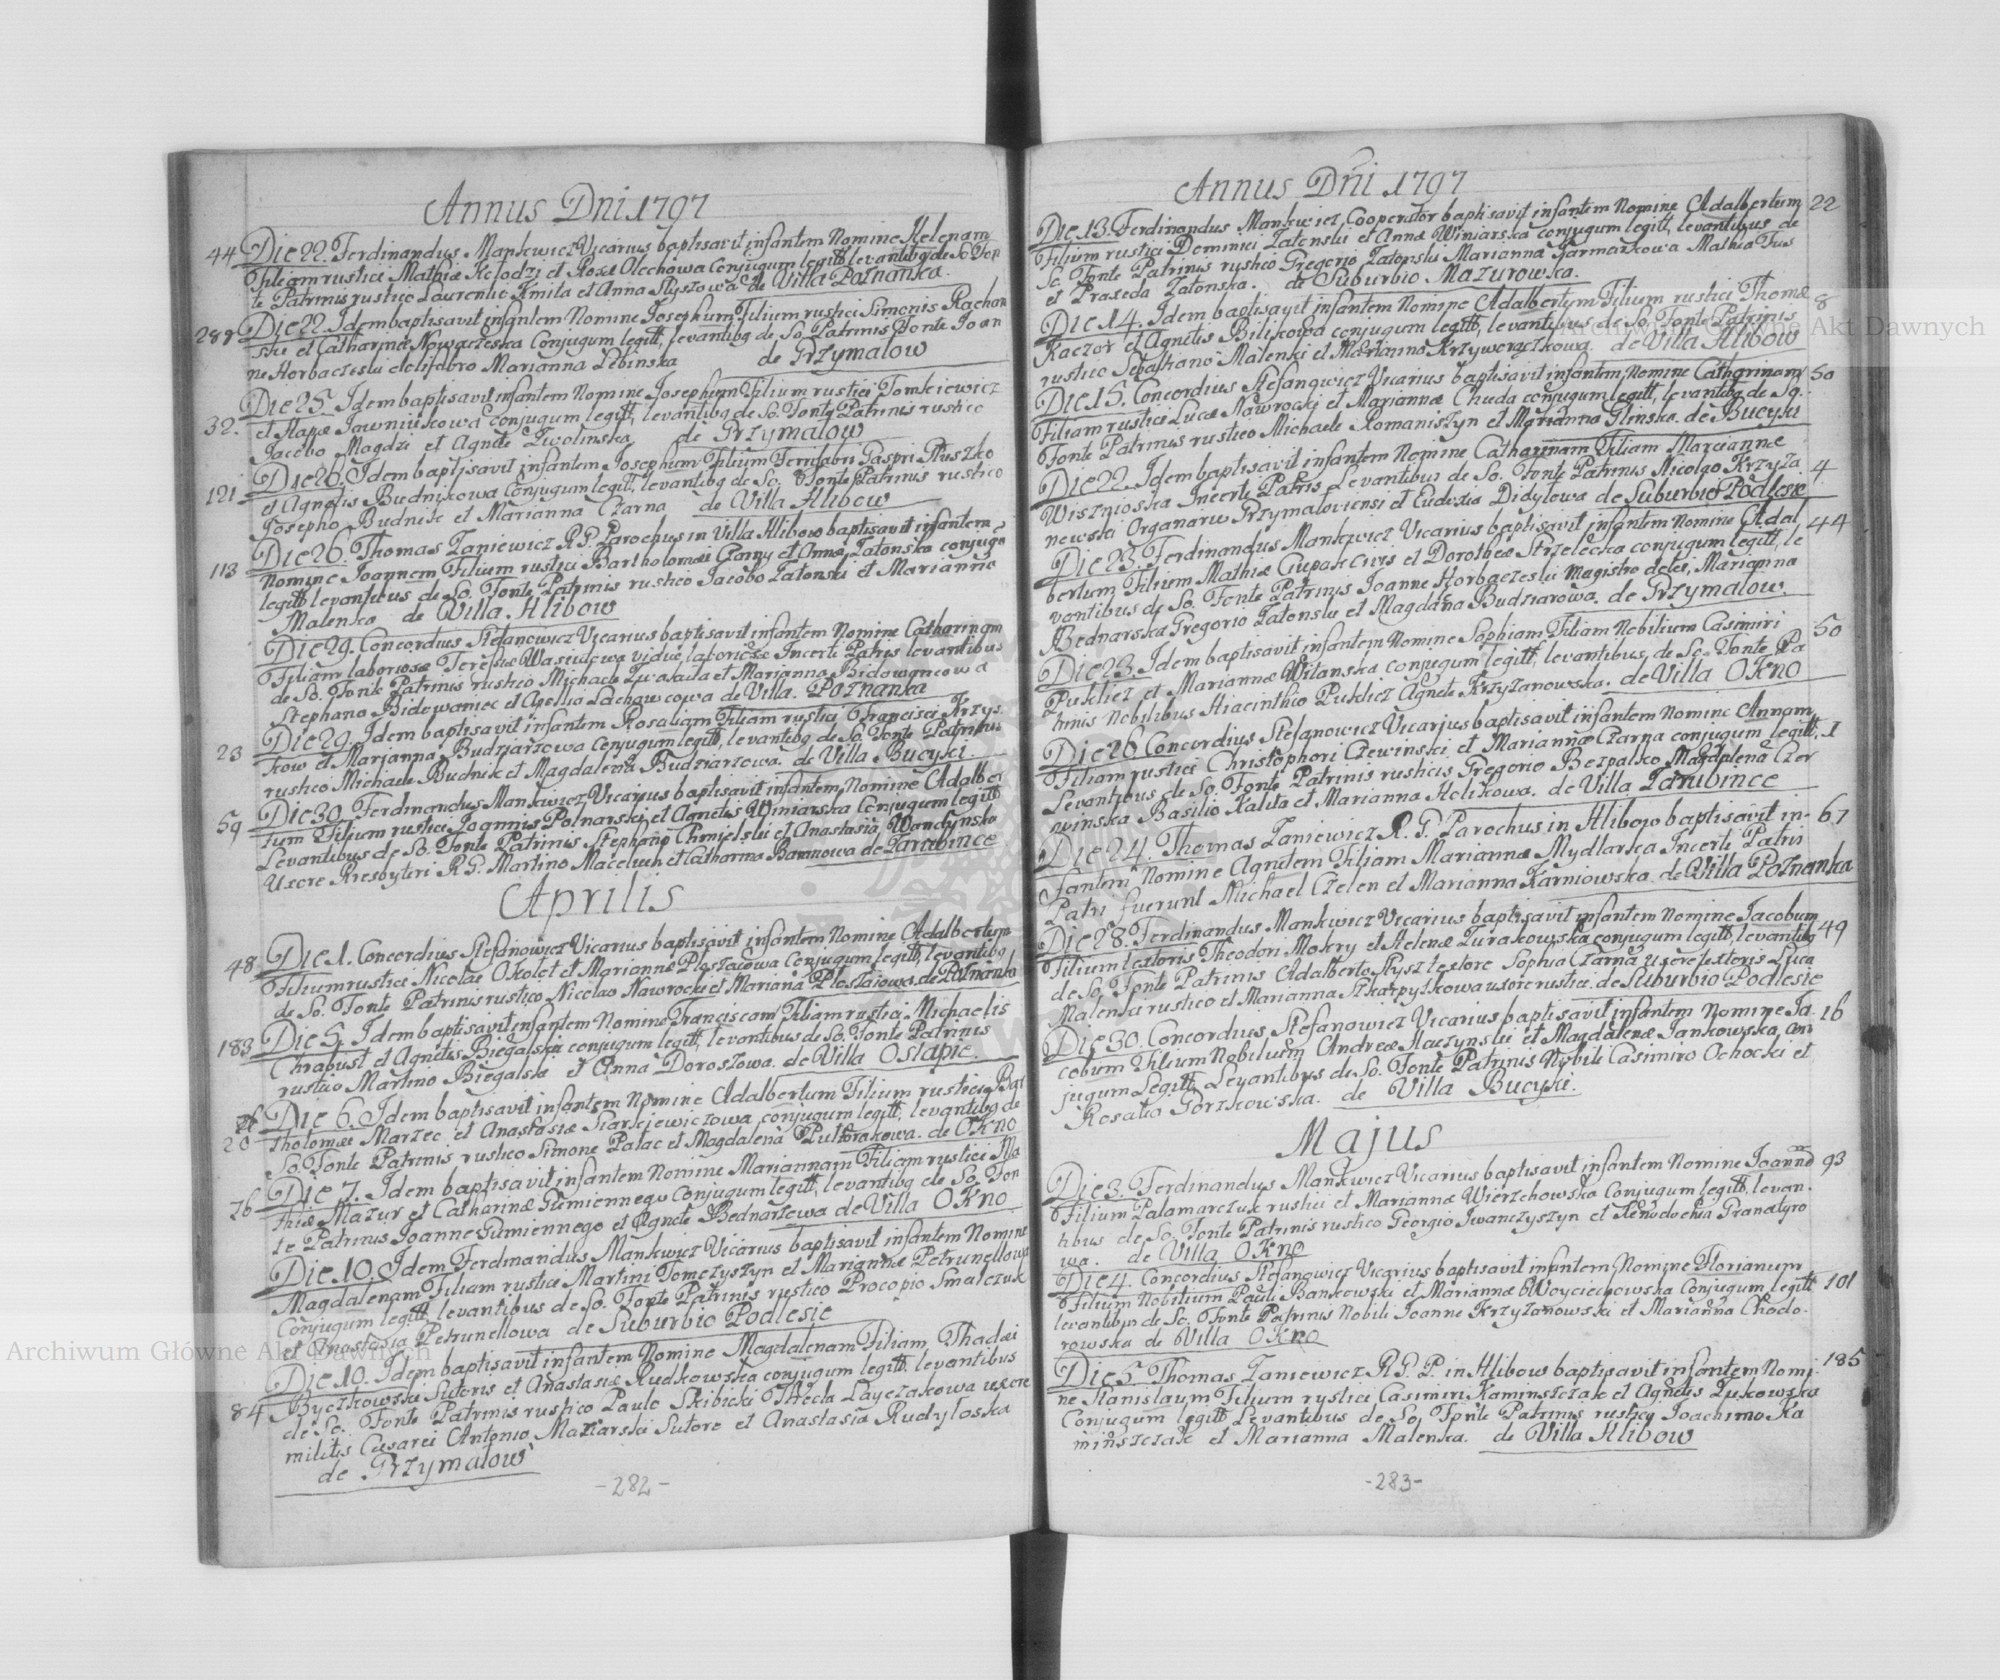 Annus Dni 1797
44 Die 22. Ferdinandus Mankwicz Vicarius baptisavit infantem Nomine Helenam
Filiam rustici Mathiæ Kolodzi et Rosæ Olechowa Conjugum legitt levantibg de So Fon
te Patrinis rustico Laurentio Kmita et Anna Slyszowa de Villa Poznanka.
287 Die 22. Idem baptisavit infantem Nomine Josephum Filium rustici Simonis Rachan
ski et Catharinæ Nowaczeska Conjugum legitt, levantibg de So. Patrinis Fonte Joan
ne Horbaczeski Marianna Lebinska de Grzymalow
Die 25. Idem baptisavit infantem Nomine Josephum Filium rustici Tomkiewicz
32. et Agapæ Jawniukowa Conjugum legitt, levantibg de So. Fonte Patrinis rustico
Jacobo Magdzi et Agnete Zwolinska de Grzymalow
Die 26. Idem baptisavit infantem Josephum Filium Gaspri Ruszko
121 et Agnetis Budnikowa Conjugum legitt, levantibg de So. Fonte Patrinis rustico
Josepho Budnik et Marianna Czarna de Villa Hlibow
Die 26. Thomas Zaniewicz R G. Parochus in Villa Hlibow baptisavit infantem
113 Nomine Joannem Filium rustici Bartholomæi Czarny et Annæ Zatonska conjugū
legitt levantibus de So. Fonte Patrinis rustico Jacobo Zatonski et Marianna
Malenka de Villa Hlibow
Die 29. Concordius Stefanowicz Vicarius baptisavit infantem Nomine Catharinam
Filiam laboriosæ Teresiæ Wasiulowa viduæ, Incerti Patris levantibus
de So. Fonte Patrinis rustico Michaele Zwakala et Marianna Bidowancowa
Stephano Bidowaniec et Apollia Lachowcowa de Villa. Poznanka
Die 29. Idem baptisavit infantem Rosaliam Filiam rustici Francisci Krzys
23 kow et Marianna Budnarzowa Conjugum legitt, levantibg de So. Fonte Patrinis
rustico Michaele Budnik et Magdalena Budnarzowa. de Villa Bucyki.
Die 30. Ferdinandus Mankwicz Vicarius baptisavit infantem Nomine Adalber
59 tum Filium rustici Joannis Polnarski et Agnetis Winiarska Conjugum legitt
Levantibus de So. Fonte Patrinis Stephano Chmielski et Anastasia Wandynska
Uxore Presbyteri R G. Martino Maceluch et Catharina Baranowa de Zarubince
Aprilis
48 Die 1. Concordius Stefanowicz Vicarius baptisavit infantem Nomine Adalbertum
Filium rustici Nicolai Okolot et Mariannæ Plostaiowa Conjugum legitt, levantibg
de So. Fonte Patrinis rustico Nicolao Nawrocki et Mariana Plostaiowa de Poznanka
183 Die 5. Idem baptisavit infantem Nomine Franciscam Filiam rustici Michaelis
Chrabust et Agnetis Biegalska conjugum legitt, levantibus de So. Fonte Patrinis
rustico Martino Biegalski et Anna Doroszowa. de Villa Ostapie.
Die 6. Idem baptisavit infantem Nomine Adalbertum Filium rustici Bar
20 tholomæi Marzec et Anastasiæ Siarkiewiczowa conjugum legitt, levantibg de
So. Fonte Patrinis rustico Simone Palac et Magdalena Pultorakowa. de OKno
Die 7. Idem baptisavit infantem Nomine Mariannam Filiam rustici Ma
76 thiæ Mazur et Catharinæ Gumiennego Conjugum legitt, levantibg de So. Fon
te Patrinis Joanne Gumiennego et Agnete Bednarzowa de Villa OKno
Die 10. Idem Ferdinandus Mankwicz Vicarius baptisavit infantem Nomine
Magdalenam Filiam rustici Martini Tomczyszyn et Mariannæ Petrunellowa
Conjugum legitt, levantibus de So. Fonte Patrinis rustico Procopio Smalczuk
et Anastasia Petrunellowa de Suburbio Podlesie
Die 10. Idem baptisavit infantem Nomine Magdalenam Filiam Thadæi
84 Byczkowski Sutoris et Anastasiæ Rudkowska conjugum legitt. levantibus
de So. Fonte Patrinis rustico Paulo Skibicki Thecla Layczakowa uxore
militis Cæsarei Antonio Maziarski Sutore et Anastasia Rudyloska
de Grzymalow
-282-
Annus Dñi 1797
Die 13. Ferdinandus Mankwicz Cooperator baptisavit infantem Nomine Adalbertum 22
Filium rustici Dominici Zatonski et Annæ Winiarska conjugum legitt, levantibus de
So. Fonte Patrinis rustico Gregorio Zatonski Marianna Jarmarkowa Mathia Fus
et Praxeda Zatonska. de Suburbio Mazurowka.
Die 14. Idem baptisavit infantem Nomine Adalbertum Filium rustici Thomæ 8
Kaczor et Agnetis Bilikowa conjugum legitt, levantibus de So. Fonte Patrinis
rustico Sebastiano Malenki et Marianna Krzyworączkowa. de Villa Hlibow
Die 15. Concordius Stefanowicz Vicarius baptisavit infantem Nomine Catharinam 50
Filiam rustici Lucæ Nawrocki et Mariannæ Chuda conjugum legitt, levantibg de So.
Fonte Patrinis rustico Michaele Romaniszyn et Marianna Glinska. de Bucyki
Die 22. Idem baptisavit infantem Nomine Catharinam Filiam Mariannæ
Wisznioska Incerti Patris Levantibus de So. Fonte Patrinis Nicolao Krzyża 4
nowski Organario Grzymaloviensi et Eudoxia Didylowa de Suburbio Podlesie
Die 23. Ferdinandus Mankwicz Vicarius baptisavit infantem Nomine Adal 44
bertum Filium Mathiæ Ciepasc Civis et Dorotheæ Strzelecka conjugum legitt, le
vantibus de So. Fonte Patrinis Joanne Horbaczeski Magistro Marianna
Bednarska Gregorio Zatonski et Magdāna Budnarowa. de Grzymalow.
Die 23. Idem baptisavit infantem Nomine Sophiam Filiam Nobilium Casimiri 50
Puklicz et Mariannæ Witanska conjugum legitt, levantibus, de So. Fonte Pa
trinis Nobilibus Hiacinthio Puklicz Agnete Krzyzanowska. de Villa OKno
Die 26. Concordius Stefanowicz Vicarius baptisavit infantem Nomine Annam
Filiam rustici Christophori Czewinski et Mariannæ Czarna conjugum legitt, 1
Levantibus de So. Fonte Patrinis rusticis Gregorio Bezpalko Magdalena Czer
winska Basilio Kalita et Marianna Holikowa. de Villa Zarubince
Die 24. Thomas Zaniewicz R. G. Parochus in Hlibow baptisavit in- 67
fantem Nomine Agnetem Filiam Mariannæ Mydlarska Incerti Patris
Patri fuerunt Michael Czelen et Marianna Karniowska. de Villa Poznanka
Die 28. Ferdinandus Mankwicz Vicarius baptisavit infantem Nomine Jacobum 49
Filium textoris Theodori Mokry et Helenæ Zurakowska conjugum legitt, levantibg
de So. Fonte Patrinis Adalberto Slysz textore Sophia Czarna uxore textoris Luca
Malenki rustico et Marianna Skarpyzkowa uxore rustici de Suburbio Podlesie
Die 30. Concordius Stefanowicz Vicarius baptisavit infantem Nomine Ja 16
cobum Filium Nobilium Andreæ Haczynski et Magdalenæ Jankowska, con
jugum Legitt, Levantibus de So. Fonte Patrinis Nobili Casimiro Ochocki et
Rosalia Gorzkowska. de Villa Bucyki.
Majus
Die 3. Ferdinandus Mankwicz Vicarius baptisavit infantem Nomine Joannē 93
Filium Palamarczuk rustici et Mariannæ Wierzchowska Conjugum legitt, levan.
tibus de So. Fonte Patrinis rustico Georgio Iwanczyszyn et Xenodochia Granatyro
wa. de Villa OKno
Die 4. Concordius Stefanowicz Vicarius baptisavit infantem Nomine Florianum
Filium Nobilium Pauli Bankowski et Mariannæ Woyciechowska Conjugum legitt 101
levantibus de So. Fonte Patrinis Nobili Joanne Krzyzanowski et Marianna Chodo-
rowska de Villa OKno
Die 5. Thomas Zaniewicz R G. P. in Hlibow baptisavit infantem Nomi- 185
ne Stanislaum Filium rustici Casimiri Kaminszczak et Agnetis Zukowska
Conjugum legitt Levantibus de So. Fonte Patrinis rustico Joachimo Ka
minszczak et Marianna Malenka. de Villa Hlibow
-283-
Archiwum Główne Akt Dawnych
Archiwum Główne Akt Dawnych